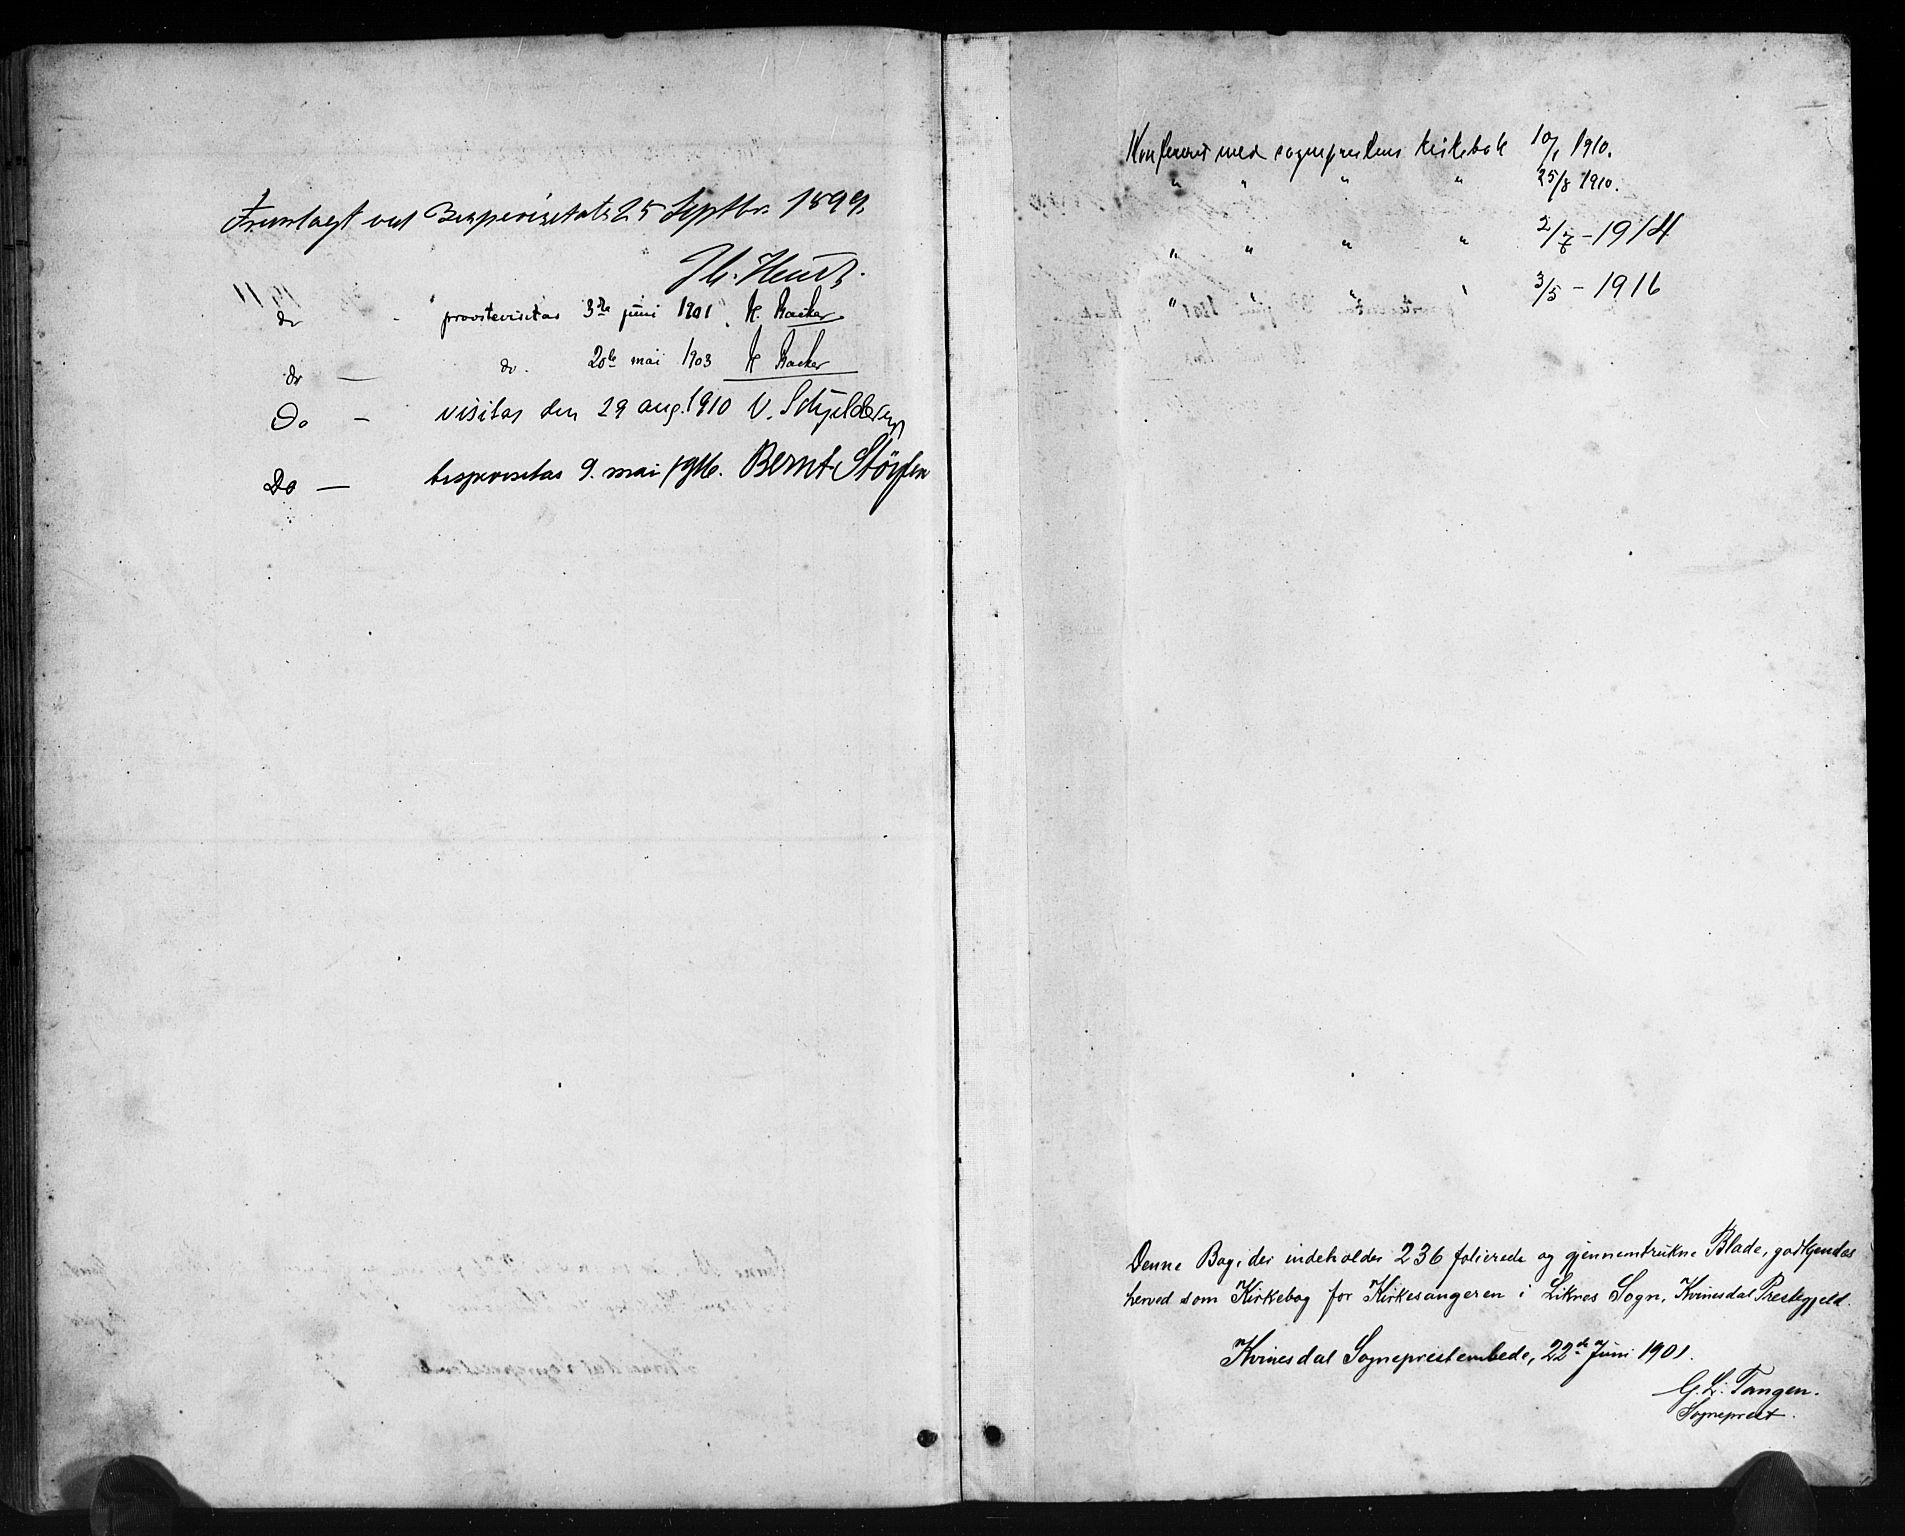 Fremlagt ved Bispevisitats 25 Septbr. 1899.
J. C. Heuch.
do - provstevisitas 3die juni 1901, K. Backer
do — do. 20de mai 1903 K Backer
Do — visitas den 29 aug. 1910 V. Schjelderup
Do — bispevisitas 9. mai 1916. Bernt Støylen
Konfereret med sogneprestens kirkebok 10/1 1910.
" " " " 25/8 1910.
" " " " 2/7 - 1914
" " " " 3/5 - 1916
Denne Bog, der indeholder 236 folierede og gjennemtrukne Blade, godkjendes
herved som Kirkebog for Kirkesangeren i Liknes Sogn, Kvinesdal Prestegjeld.
Kvinesdal Sogneprestembede, 22de Juni 1901.
G. L. Tangen.
Sogneprest.